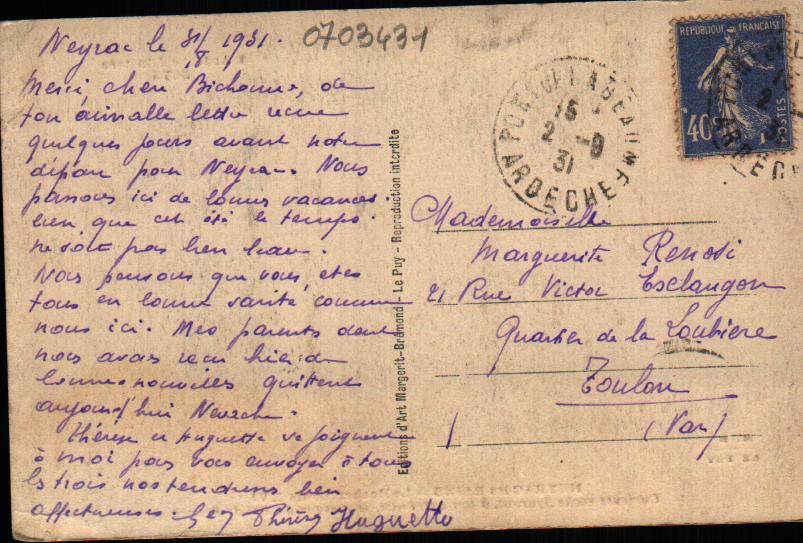 Neyrac le 31/8 1931.
0703431
Merci, chère Bichonne, de
ton aimable lettre reçue
quelques jours avant notre
départ pour Neyrac. Nous
passons ici de bonnes vacances
bien que cet été le temps
ne soit pas bien beau.
Nous pensons que vous êtes
tous en bonne santé comme
nous ici. Mes parents dont
nous avons reçu hier de
bonnes nouvelles quittent
aujourd'hui
Thérèse et Huguette se joignent
à moi pour vous envoyer à tous
les trois nos tendresses bien
affectueuses. Thérèse Huguette
Editions d'Art Margerit-Brémond - Le Puy - Reproduction interdite
REPUBLIQUE FRANÇAISE
40c
POSTES
15
2 - 9
31
ARDECHE
ARDECHE
Mademoiselle
Marguerite Renosi
21 Rue Victor Esclangon
Quartier de la Loubière
Toulon
(Var)